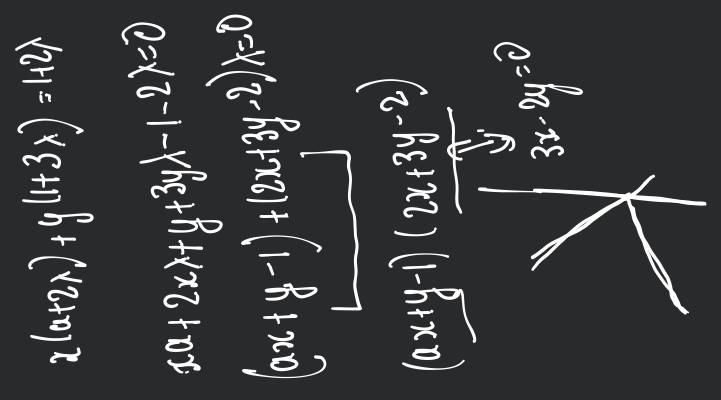 x(a+2λ)+y(1+3λ)=1+2λ
xa+2xλ+y+3yλ-1-2λ=0
(ax+y-1)+(2x+3y-2)λ=0
(ax+y-1)(2x+3y-2)
3x-2y=0